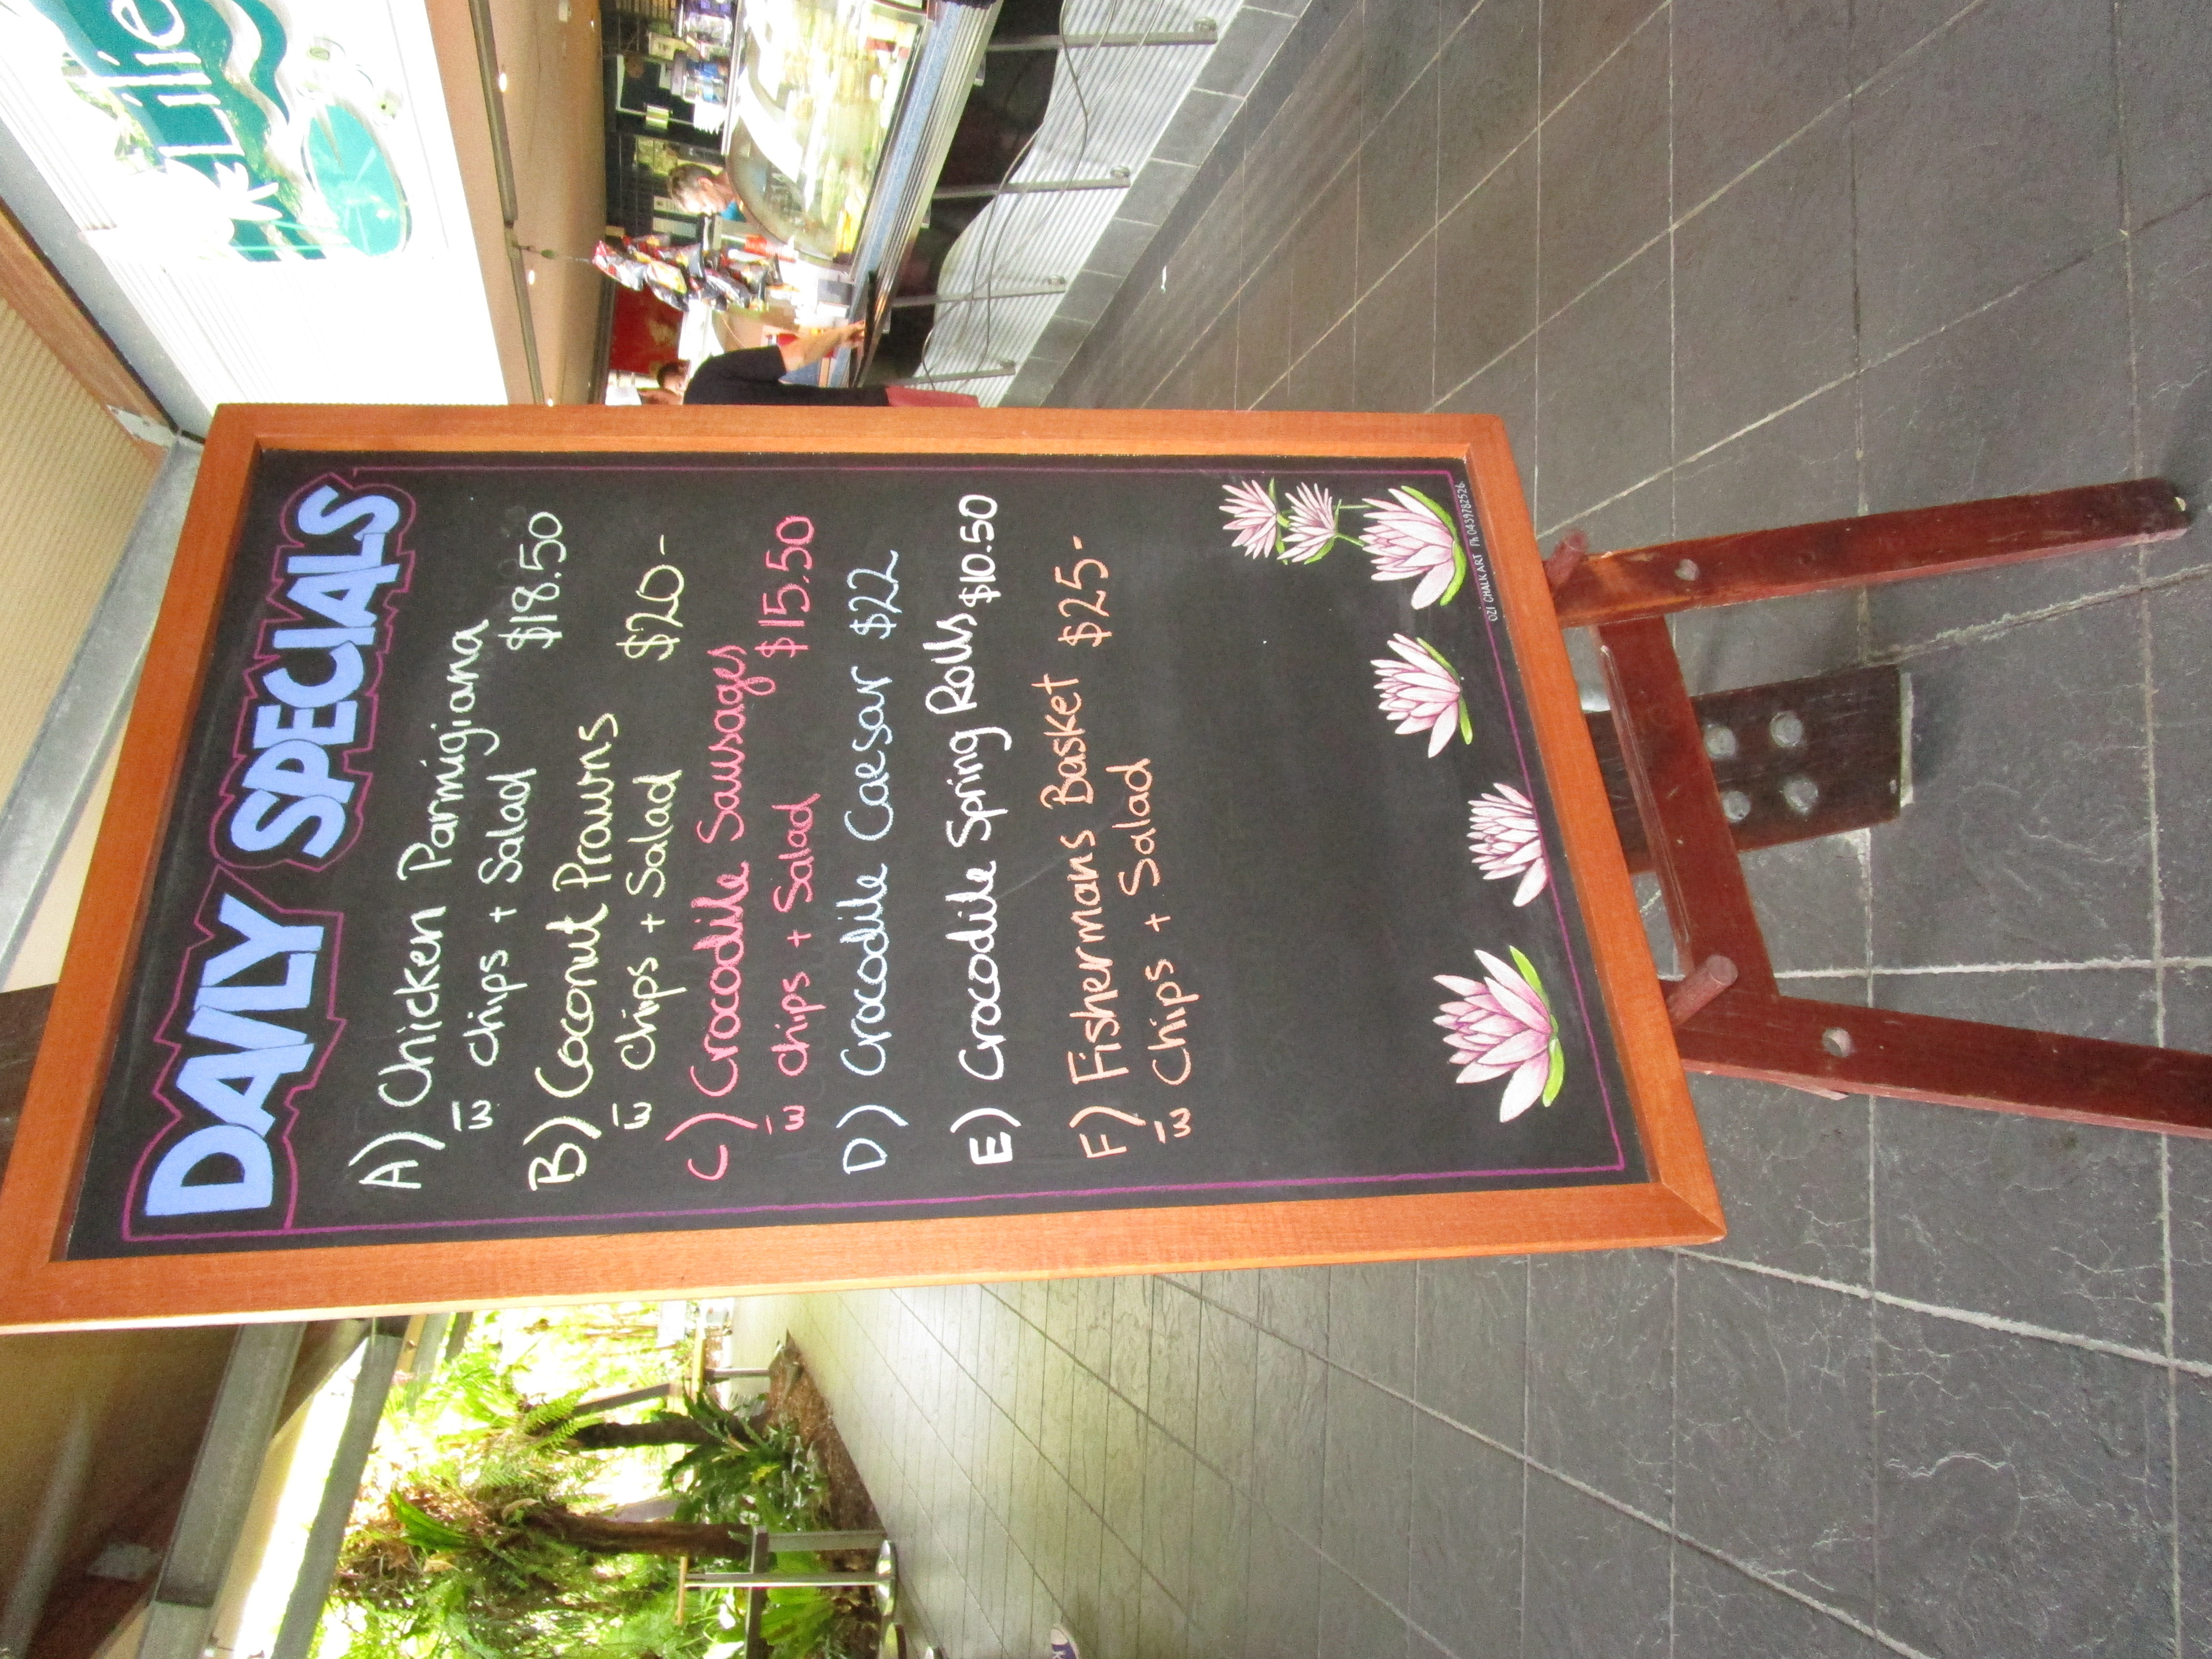 DAILY SPECIALS
A) Chicken Parmigiana
w̅ chips + Salad $18.50
B) Coconut Prawns
w̅ chips + Salad $20-
C) Crocodile Sausages
w̅ chips + Salad $15.50
D) Crocodile Caesar $22
E) Crocodile Spring Rolls $10.50
F) Fishermans Basket $25-
w̅ Chips + Salad
OZI CHALKART Ph 0439782526
Lilie